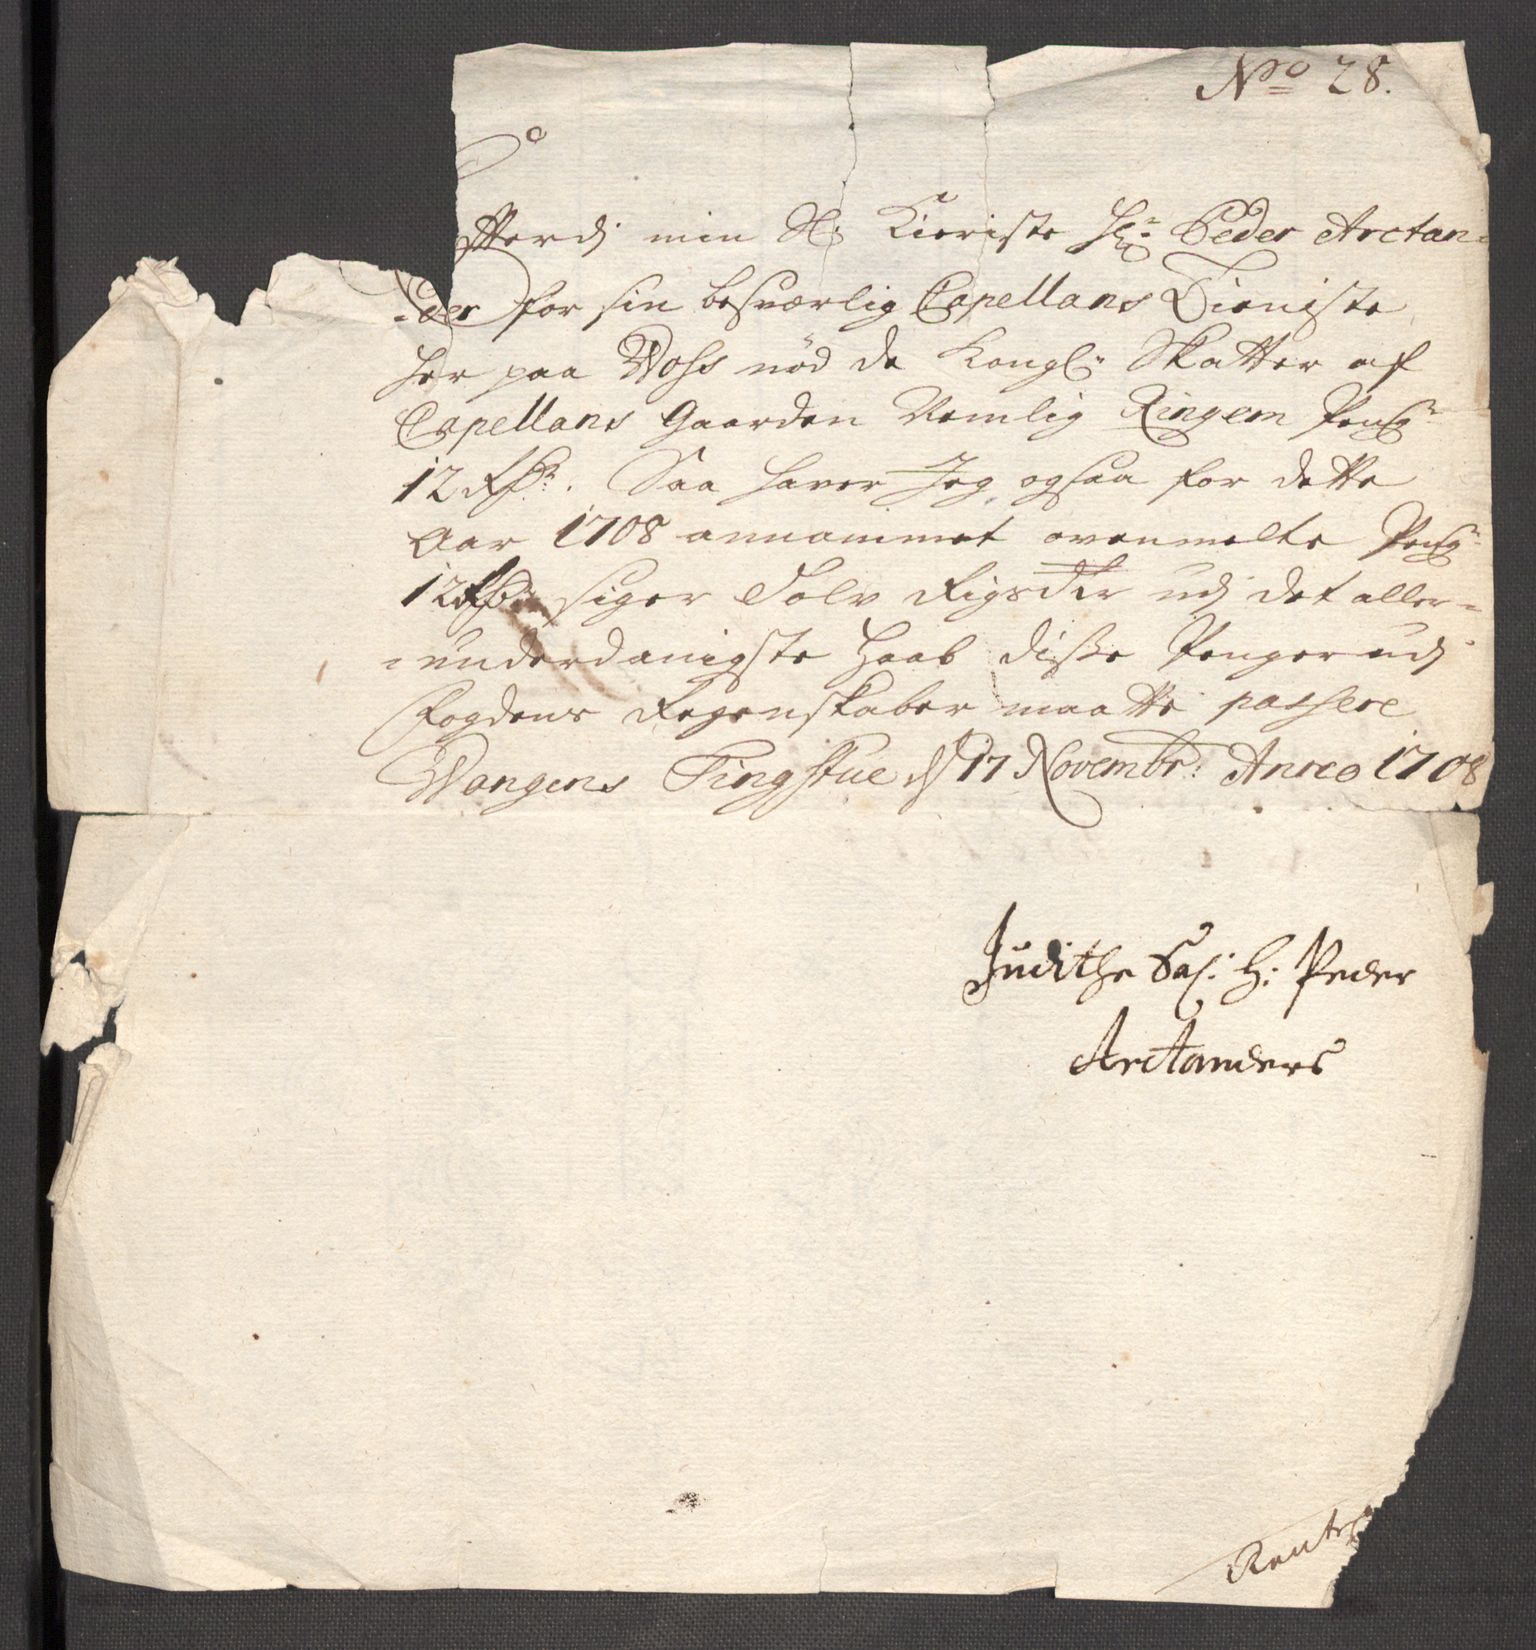 No 28.
fterdj min Sl: Kieriste Hr: Peder Arctan-
-der for sin besværlig Capellans Tieniste
her paa Woss nød de Kongl: Skatter af
Capellans Gaarden Nemlig Ringem Peng:
12 Rdr: Saa haver Jeg ogsaa for dette
Aar 1708 annammet ovenmelte Peng:
12 Rdr: siger Tolv Rigsdlr udj det aller-
-underdanigste Haab disse Penger udj
Fogdens Regenskaber maatte passere
Wangens Tingstue d 17 Novembr: Anno 1708
Judithe Sal: H: Peder
Arctanders